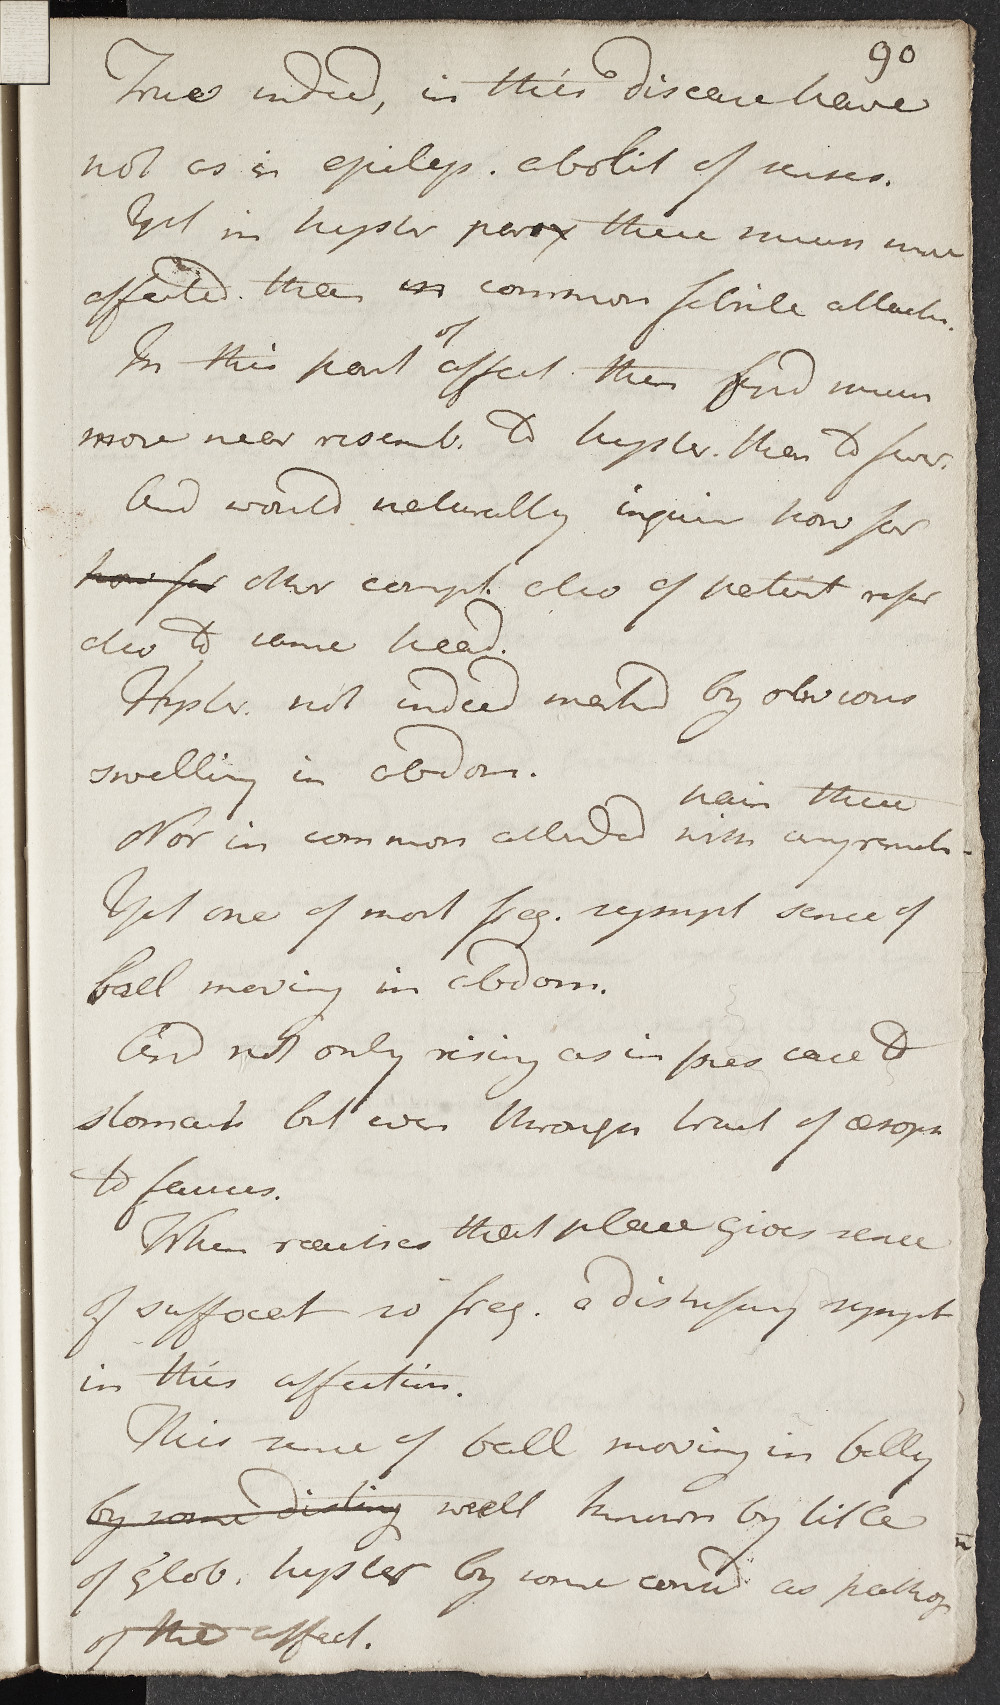 90
True indeed, in this disease have
not as in epilep. abolit of senses.
Yet in hyster parox these more
affected than in common febrile attacks.
In this part of affect then find
more near resemb. to hyster. than to fever.
And would naturally inquire how far
how far other compt. also of patient refer
also to same head.
Hyster. not indeed marked by obvious
swelling in abdom.
pain there
Nor in common attended with any
Yet one of most freq. sympt sence of
ball moving in abdom.
And not only rising as in pres case to
stomach but even through tract of œsoph
to fauces.
When reaches that place gives sence
of suffocat so freq. a distressing sympt
in this affection.
This sence of ball moving in belly
by some disting well known by title
of glob. hyster by some consid as pathog
of the affect.